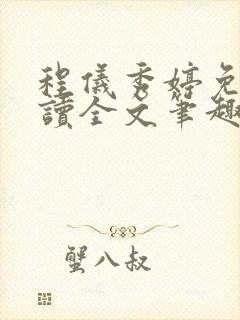 程儀秀婷免
讀全文筆趣
蟹八叔